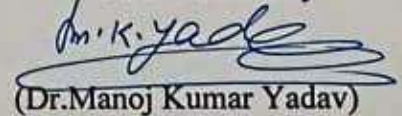 m.k.yade
(Dr.Manoj Kumar Yadav)